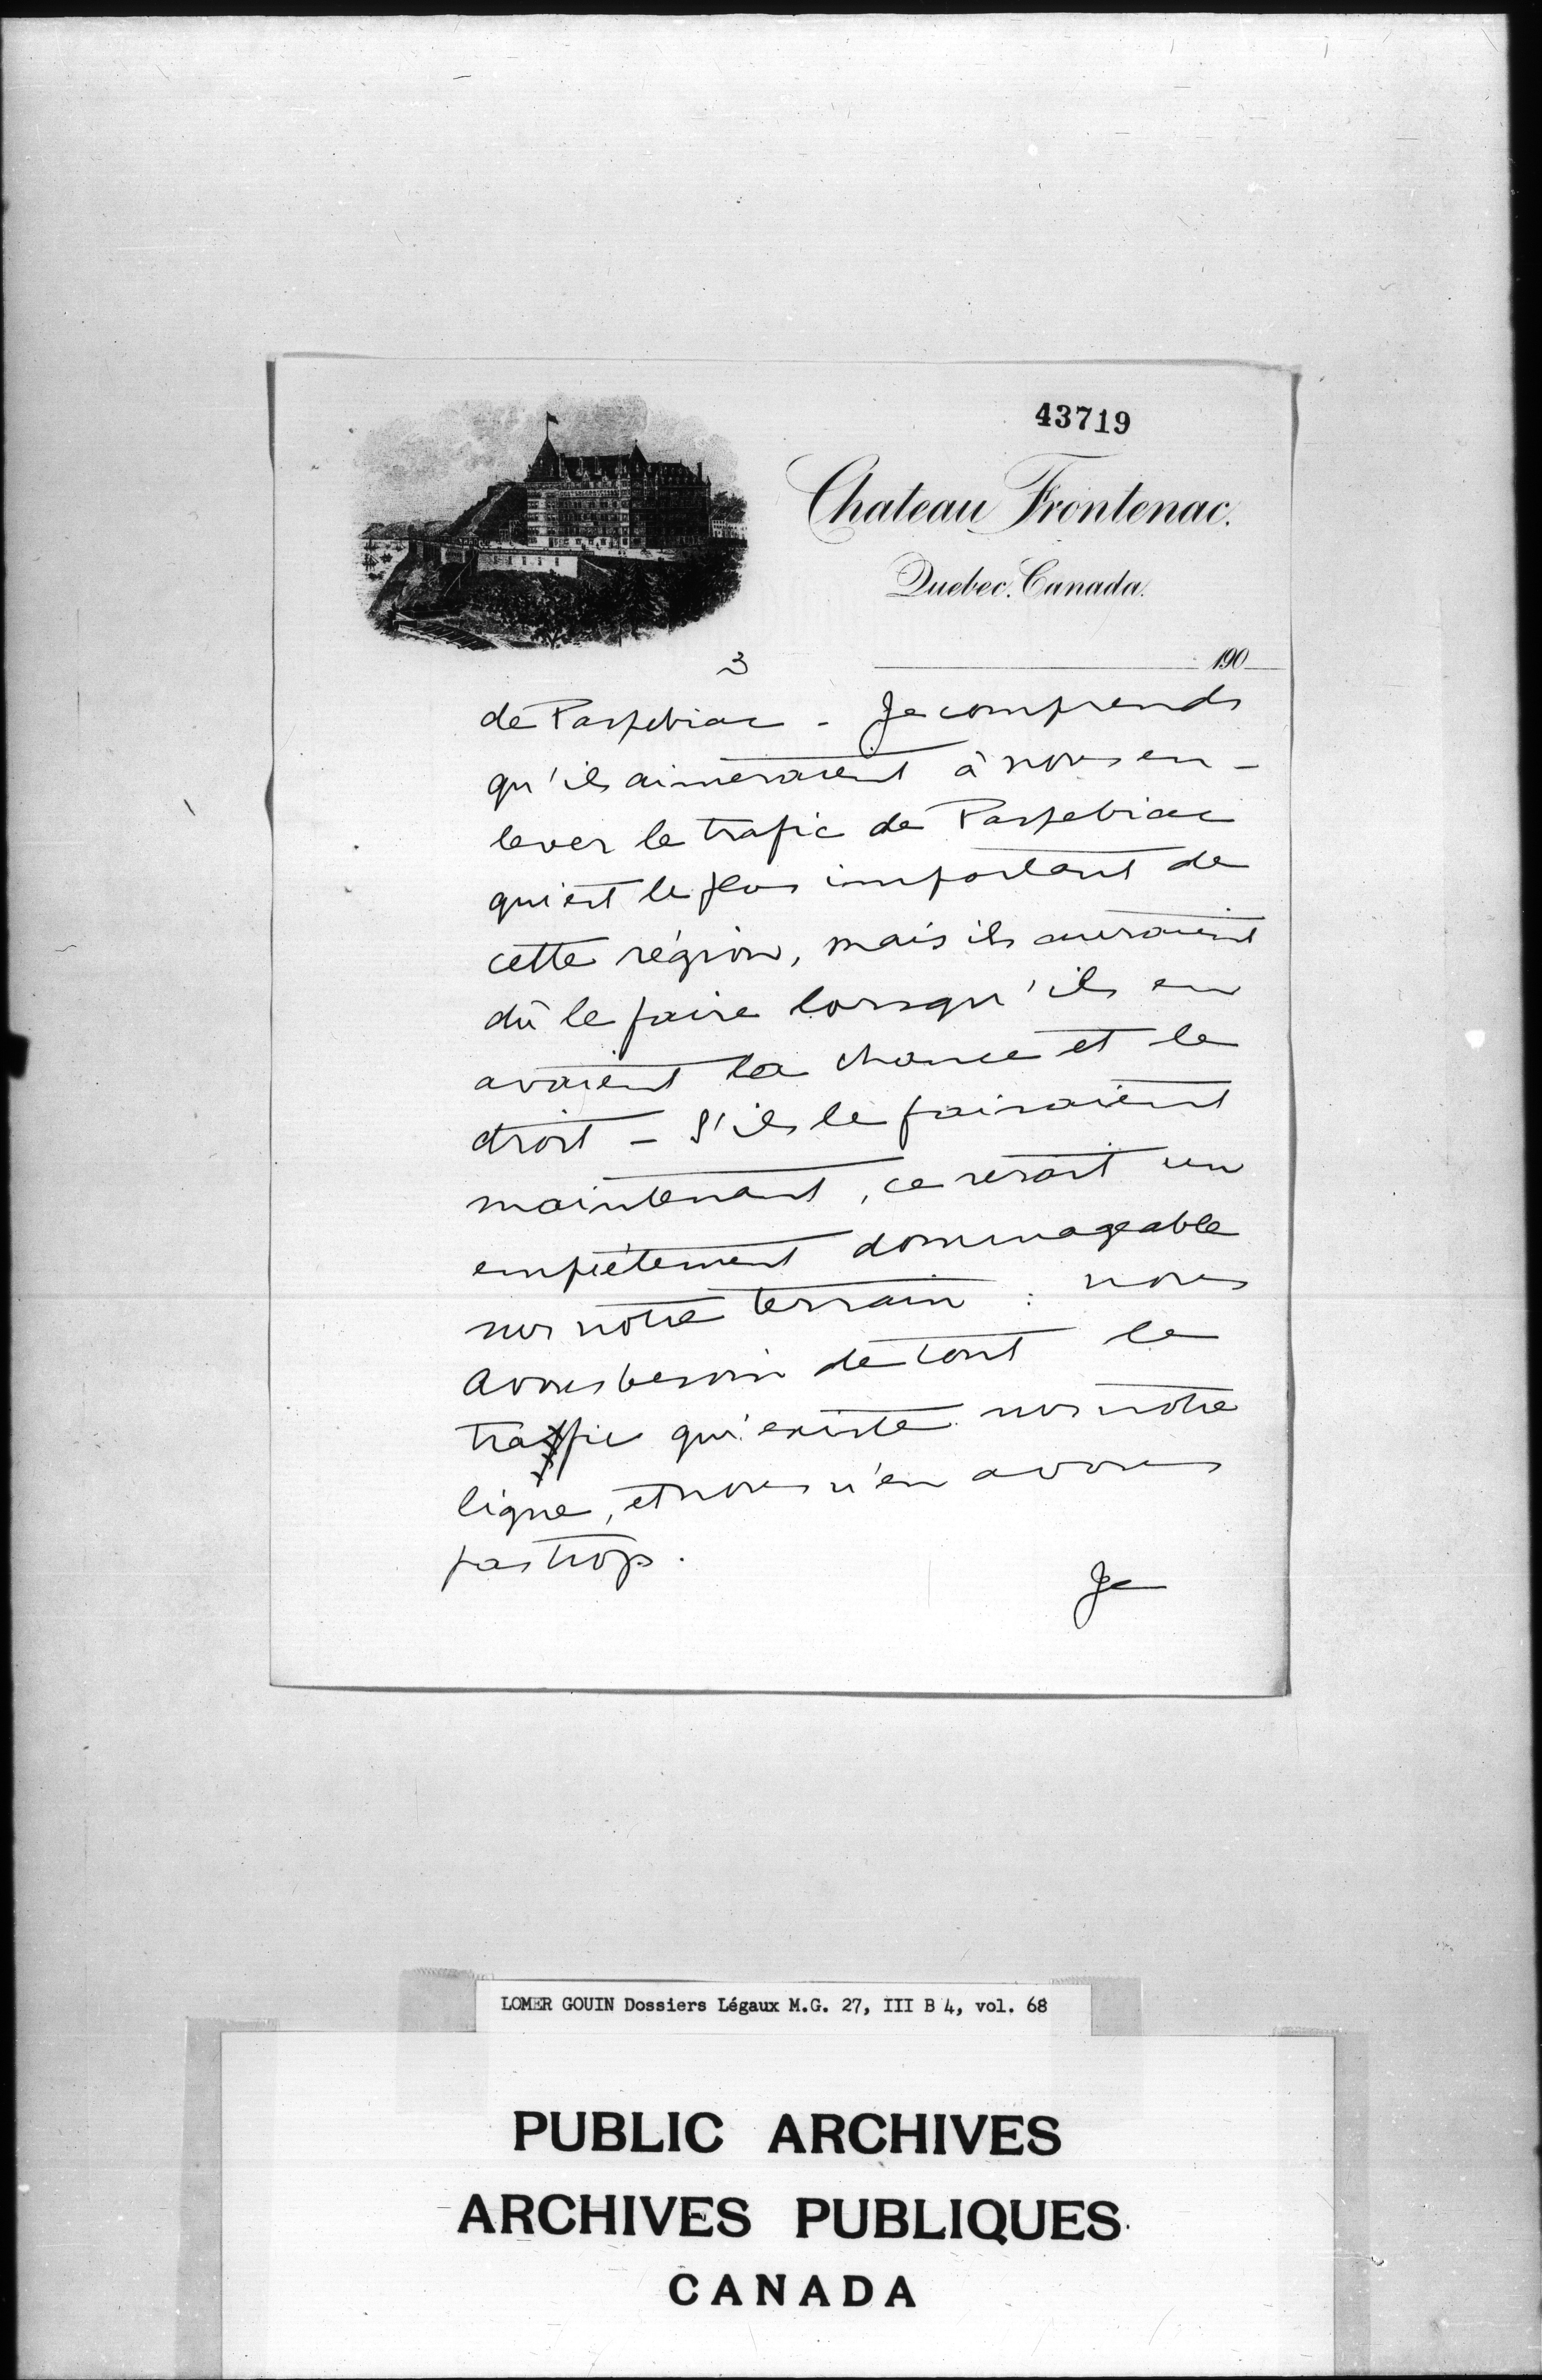 43719
Chateau Frontenac.
Quebec, Canada.
190
3
de Paspebiac - Je comprends
qu'ils aimeraient à nous en-
lever le trafic de Paspebiac
qui est le plus important de
cette région, mais ils auraient
dû le faire lorsqu'ils en
avaient la chance et le
droit - S'ils le faisaient
maintenant, ce serait un
empiètement dommageable
sur notre terrain : nous
avons besoin de tout le
trafic qui existe sur notre
ligne, et nous n'en avons
pas trop.
Je
LOMER GOUIN Dossiers Légaux M.G. 27, III B 4, vol. 68
PUBLIC ARCHIVES
ARCHIVES PUBLIQUES
CANADA